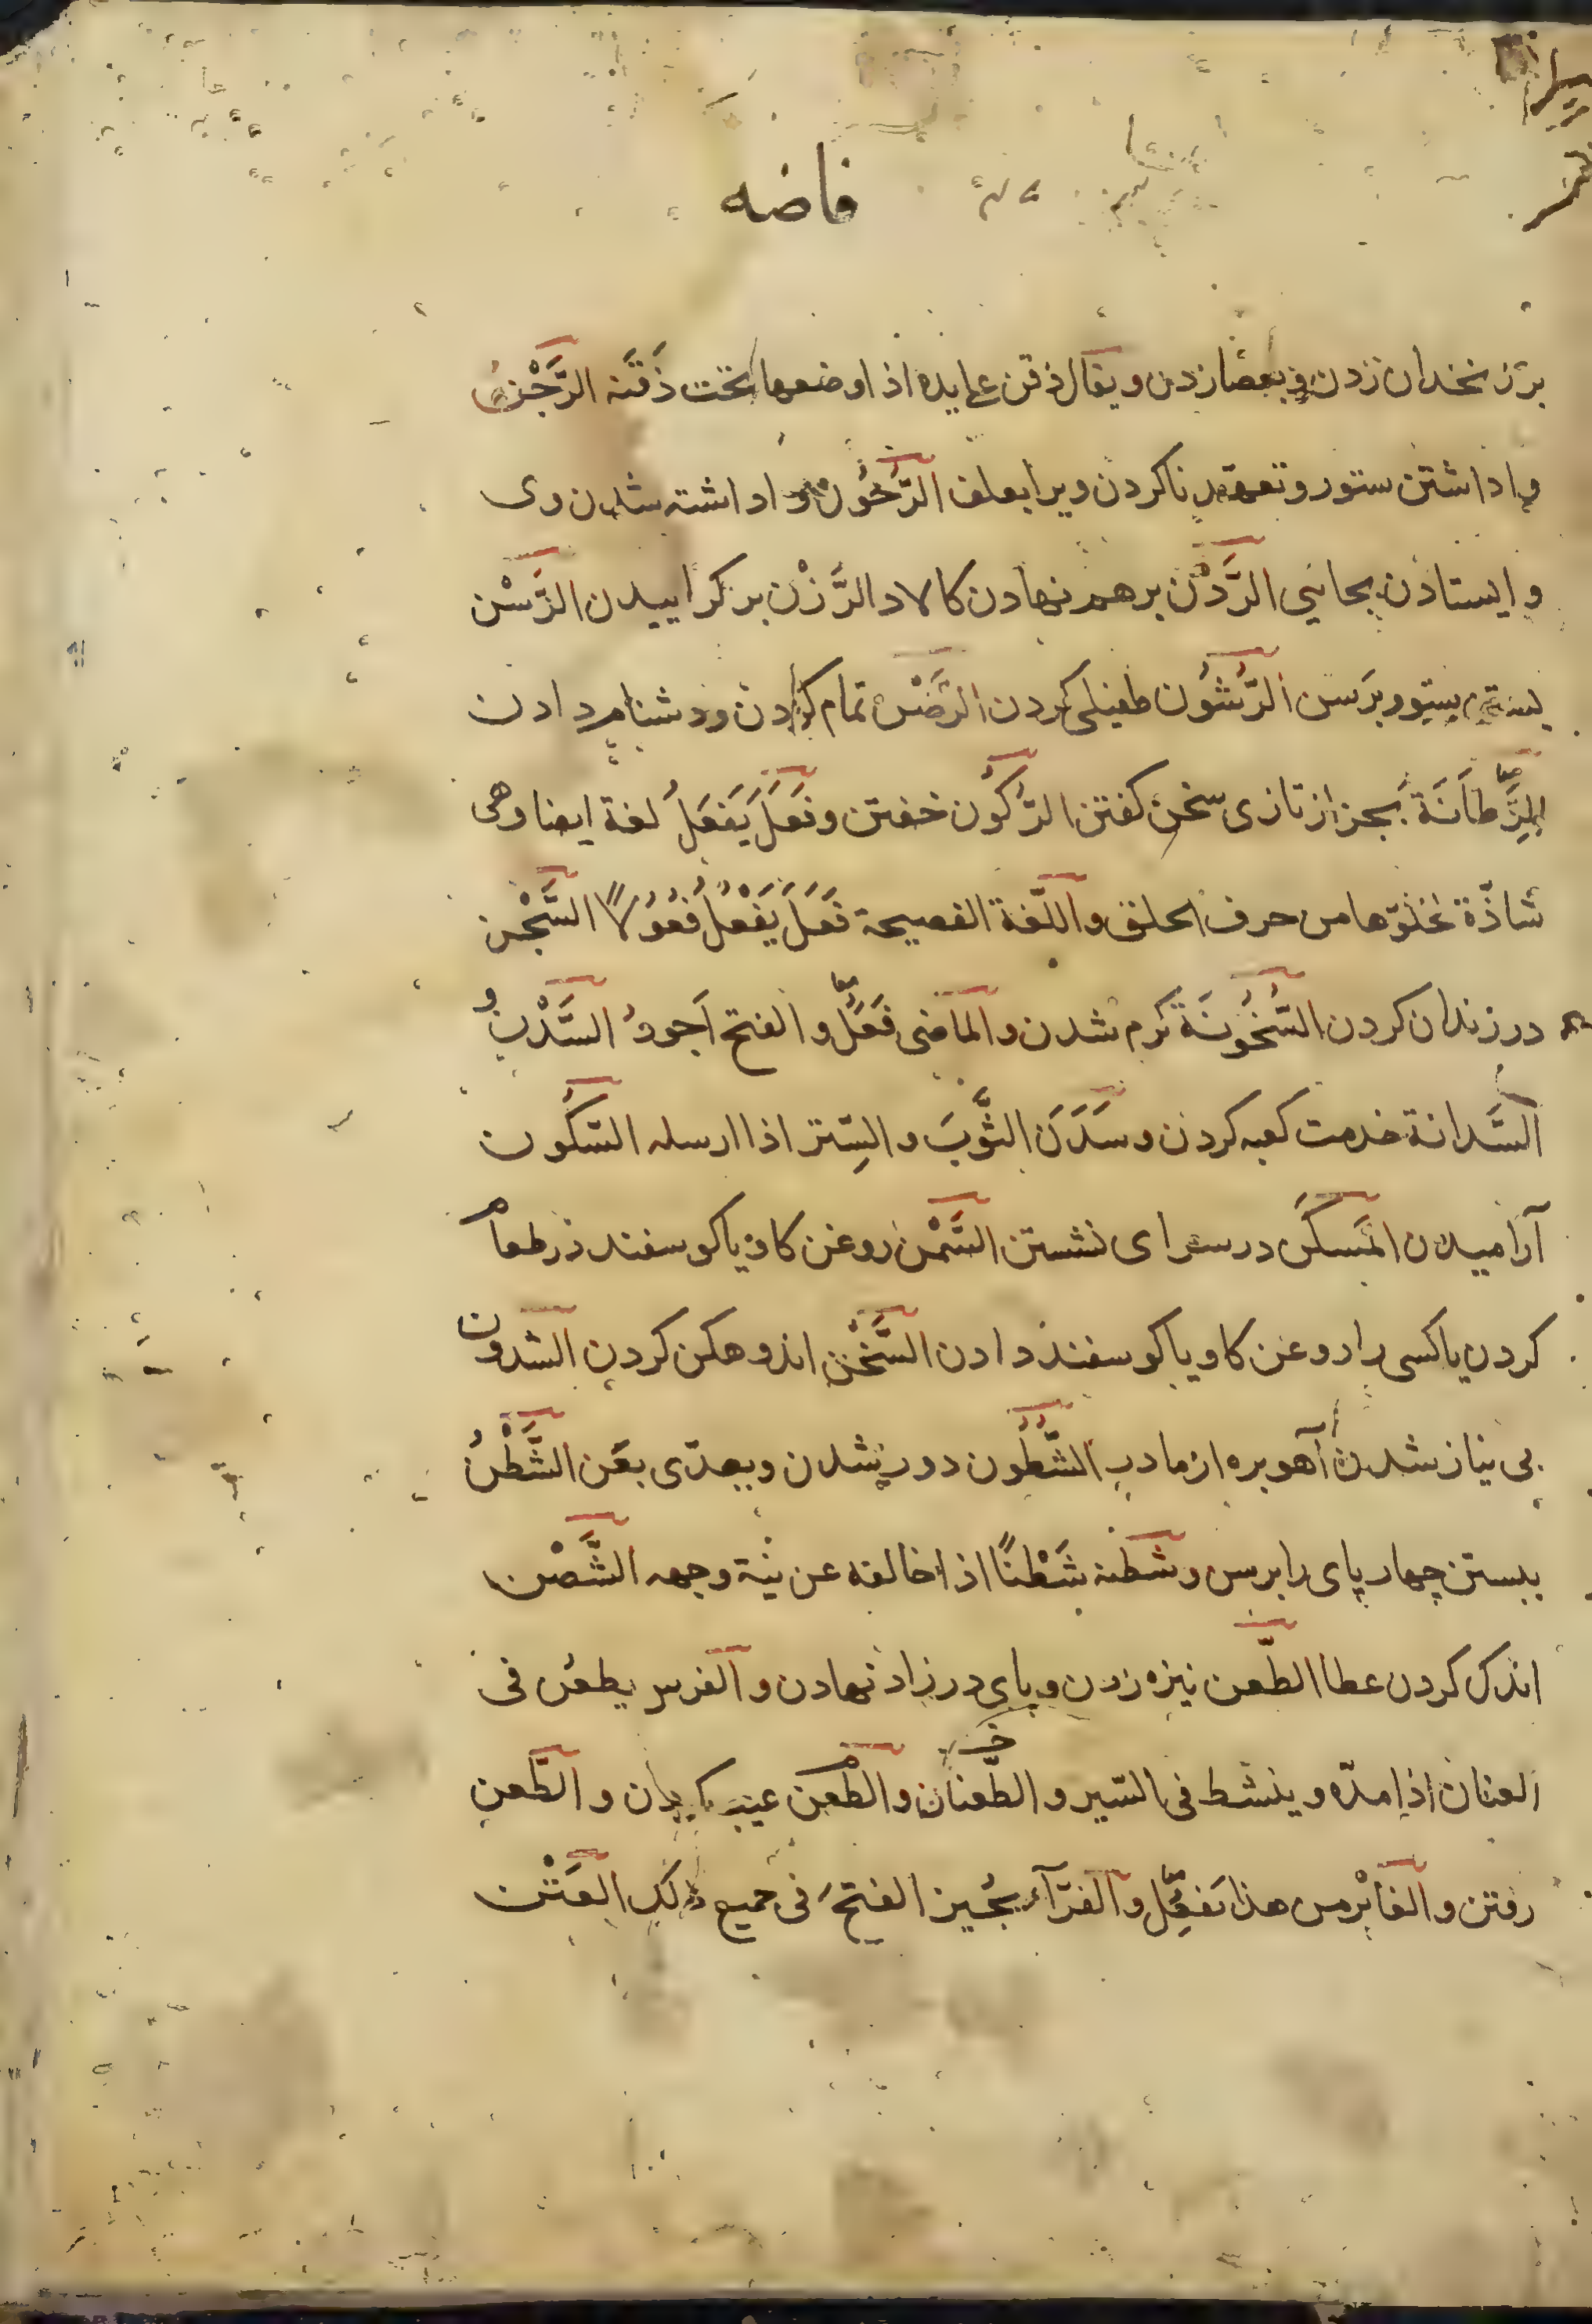 فاضه
برزنخدان زدن و بعصا زدن و یقال ذقن علی یده اذا وضعها تحت ذَقَنه الرَّجْنُ
واداشتن ستور و تعهد ناکردن ویرا بعلف الرُّجُون واداشته شدن وی
و ایستاذن بجائی الرَّدْن برهم نهادن کالا و الرَّزْن برکراییدن الرَّسْن
بستن ستور برَسن الرُّشُون طفیلی کردن الرَّضْن تمام کردن و دشنام دادن
الرِّطَانَة بجز از تازی سخن کفتن الرُّکُون خفتن و فَعَلَ یَفْعَلُ لغة ایضا وهی
شاذّة لخلوّها من حرف الحلق و اللّغة الفصیحة فَعَلَ یَفْعُلُ فُعُوْلًا السَّجْن
در زندان کردن السُّخُوْنَة کرم شدن و الماضی فَعَلَ و الفتح اَجودُ السَّدْن و
السَّدانة خدمت کعبه کردن و سَدَنَ الثَّوبَ و السِتر اذا ارسله السُّکُون
آرامیدن المَسکَن در سرای نشستن السَّمْن روغن کاو یا کوسفند در طعام
کردن یا کسی را روغن کاو یا کوسفند دادن الشَّجْن اندوهکن کردن الشدون
بی نیاز شدن آهوبره از مادر الشُّطُون دور شدن و یعدّی بعَن الشَّطْنُ
ببستن چهار پای را برسن و شطنه شَطْنًا اذا خالفه عن نیّة وجهه الشَّصْن
اندک کردن عطا الطّعن نیزه زدن و پای در زاد نهادن و الفرس یطعُن فی
العنان اذا مدّه و ینشط فی السّیر و الطَّعَنان و الطَّعْن عیب کردن و الطّعن
رفتن و الغابْر من هذا یَفعُل و الفرّآء یُجیز الفتحَ فی جمیع ذلک العَثْن